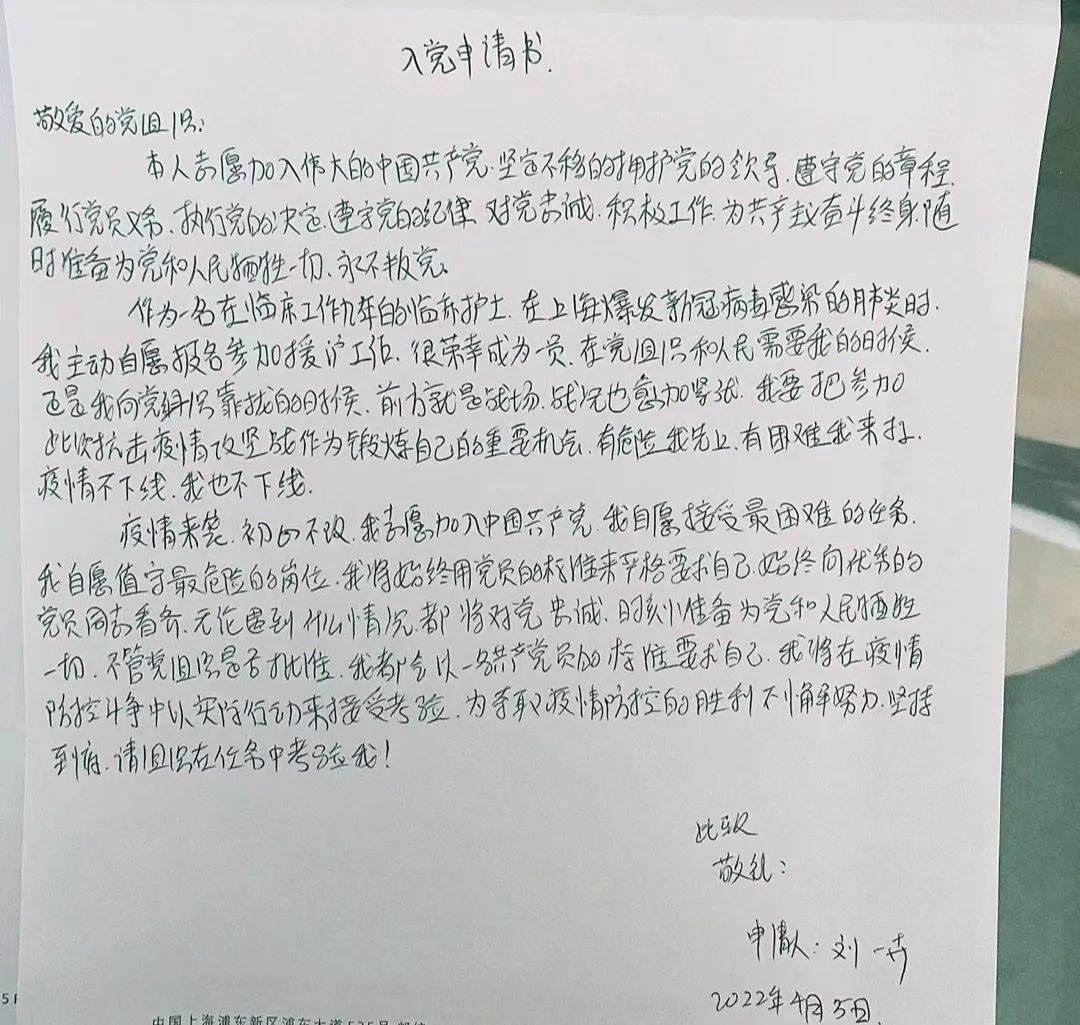 入党申请书.
敬爱的党组织:
本人志愿加入伟大的中国共产党.坚定不移的拥护党的领导.遵守党的章程.
履行党员义务.执行党的决定.遵守党的纪律 对党忠诚.积极工作 为共产主义奋斗终身.随
时准备为党和人民牺牲一切.永不叛党。
作为一名在临床工作九年的临床护士.在上海爆发新冠病毒感染的肺炎时.
我主动自愿报名参加援沪工作.很荣幸成为一员.在党组织和人民需要我的时候.
还是我向党组织靠拢的时候.前方就是战场.战况也愈加紧张.我要把参加
此次抗击疫情攻坚战作为锻炼自己的重要机会.有危险我先上.有困难我来扛.
疫情不下线.我也不下线.
疫情来袭.初心不改.我志愿加入中国共产党.我自愿接受最困难的任务.
我自愿值守最危险的岗位.我将始终用党员的标准来严格要求自己.始终向优秀的
党员同志看齐.无论遇到什么情况.都将对党忠诚.时刻准备为党和人民牺牲
一切.不管党组织是否批准.我都会以一名共产党员的标准要求自己.我将在疫情
防控斗争中以实际行动来接受考验.为夺取疫情防控的胜利不懈努力.坚持
到底.请组织在任务中考验我!
此致
敬礼:
申请人:刘一卉
2022年4月5日.
中国上海浦东新区浦东大道535号